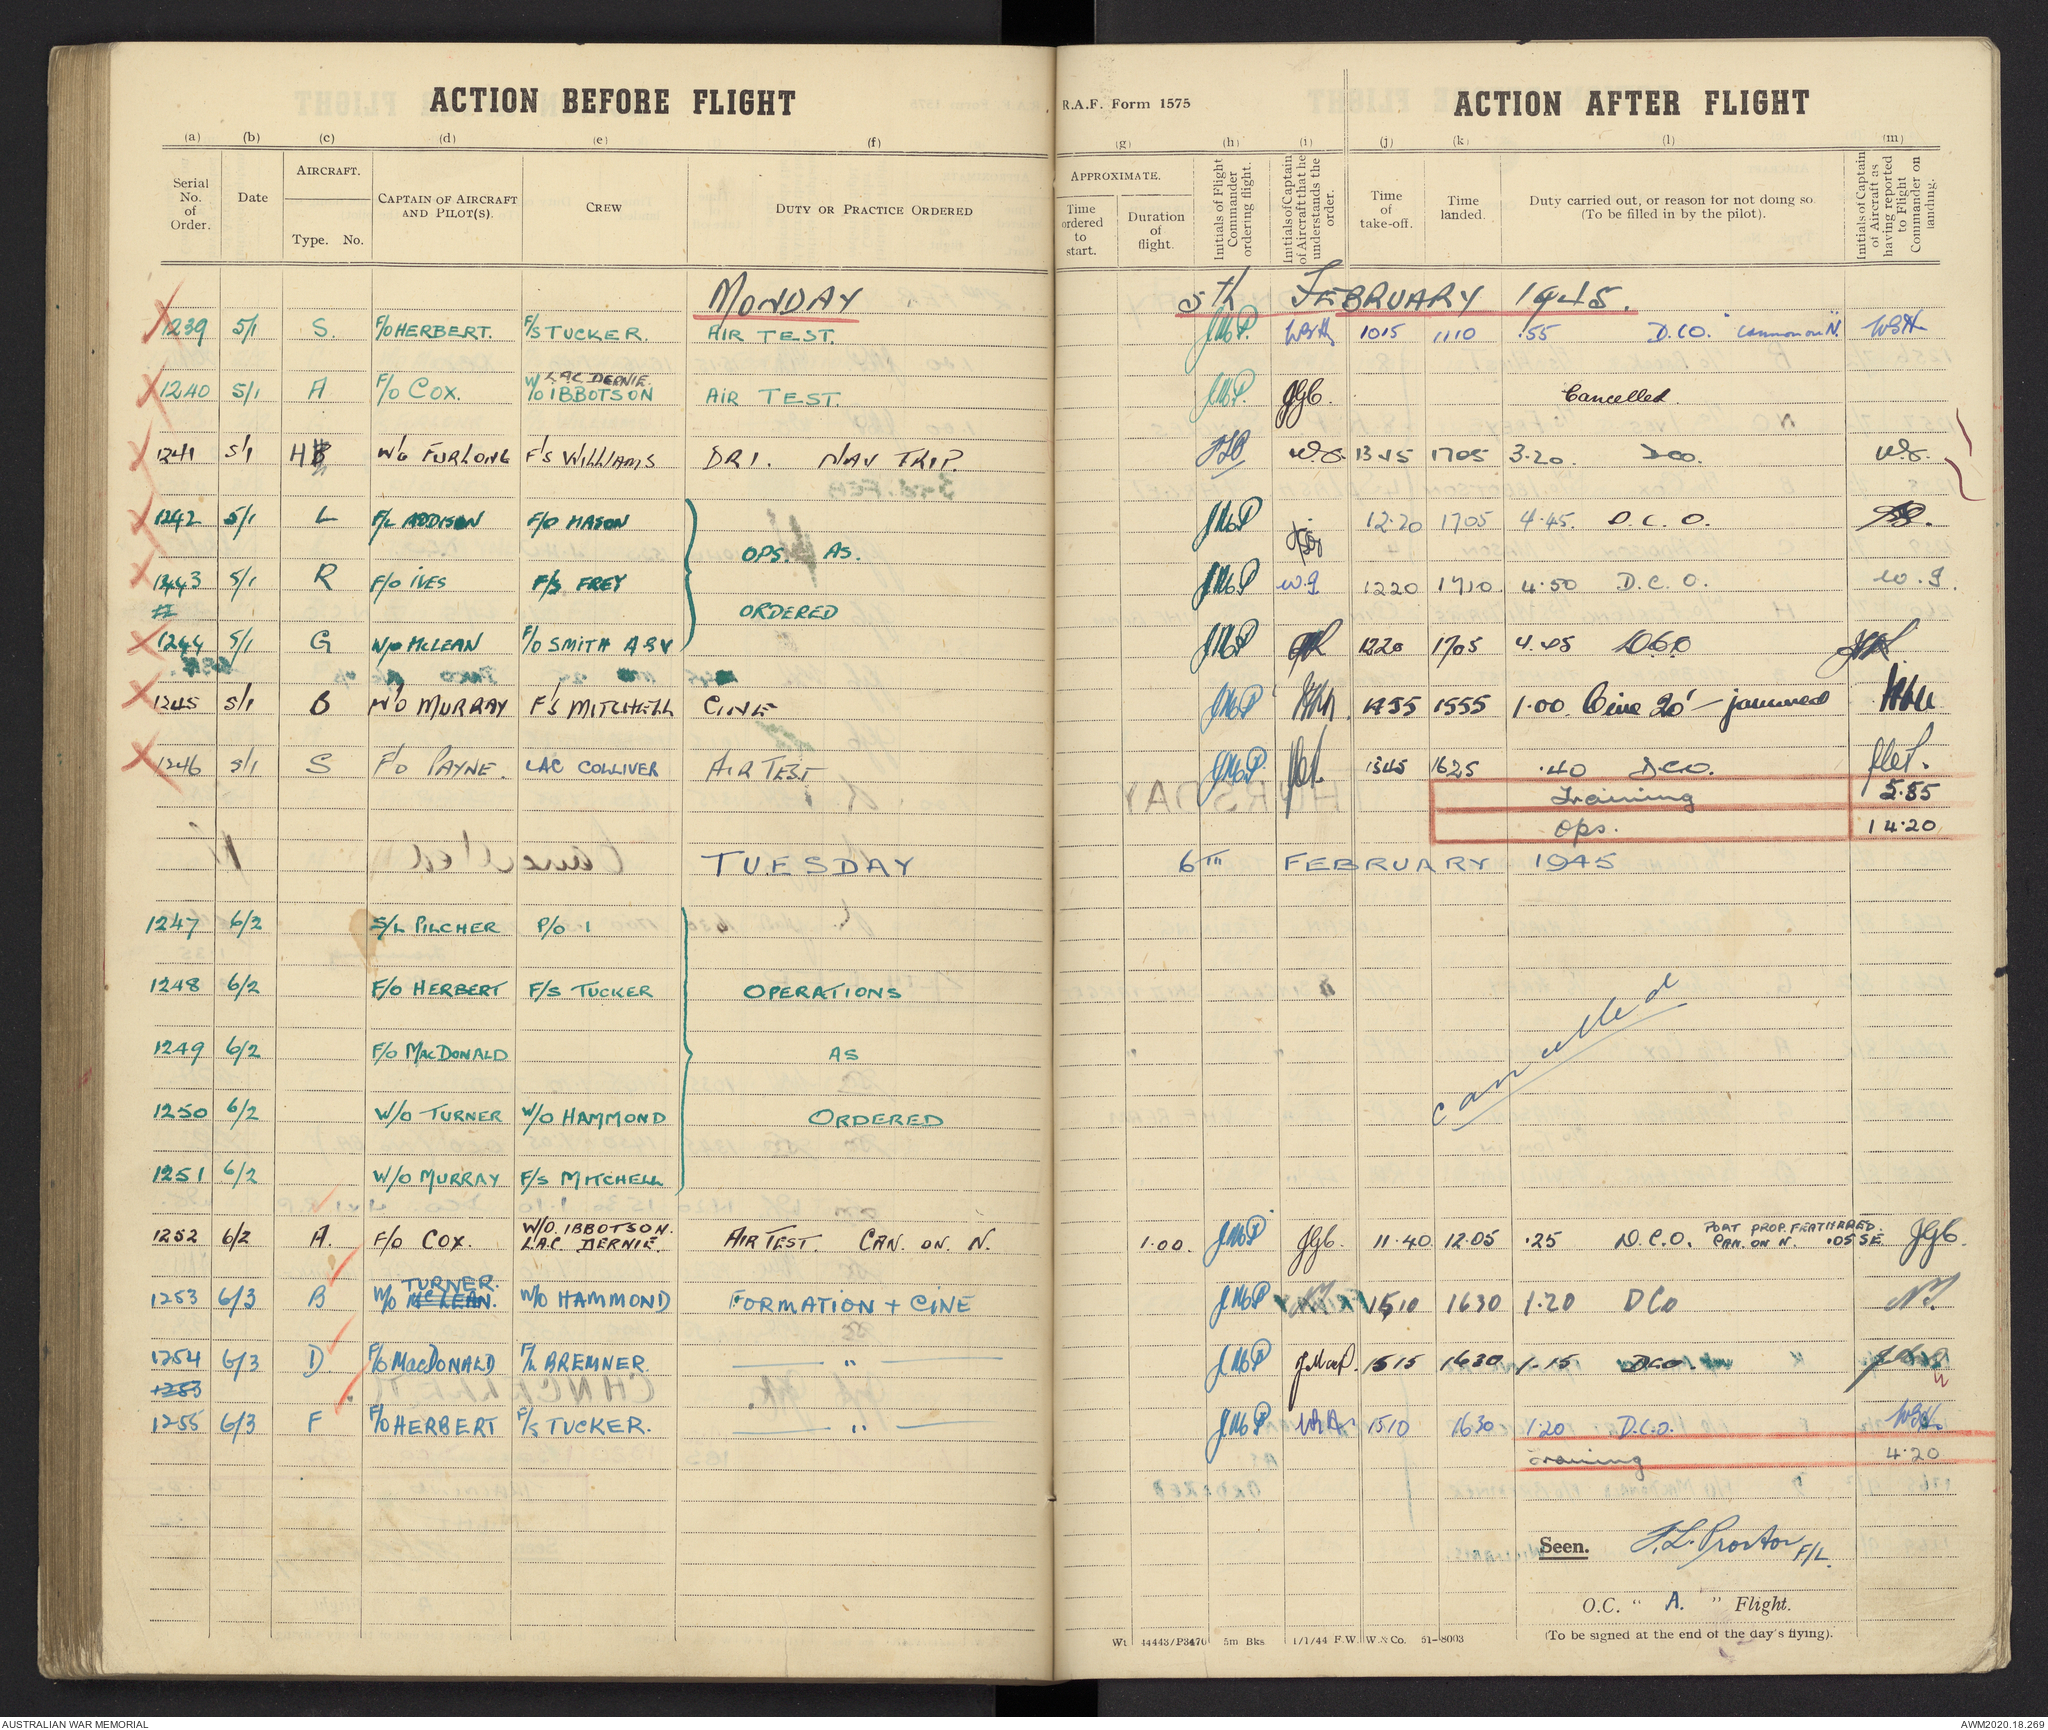 ACTION BEFORE FLIGHT
R.A.F. Form 1575
ACTION AFTER FLIGHT
(a) (b) (c) (d) (e) (f) (g) (h) (i) (j) (k) (l) (m)
Serial No. of Order.
Date
AIRCRAFT.
Type. No.
CAPTAIN OF AIRCRAFT AND PILOT(S).
CREW
DUTY OR PRACTICE ORDERED
APPROXIMATE.
Time ordered to start.
Duration of flight.
Initials of Flight Commander ordering flight.
Initials of Captain of Aircraft that he understands the order.
Time of take-off.
Time landed.
Duty carried out, or reason for not doing so (To be filled in by the pilot).
Initials of Captain of Aircraft as having reported to Flight Commander on landing.
MONDAY 5th FEBRUARY 1945.
1239 5/1 S. F/O HERBERT. F/S TUCKER. AIR TEST. 1015 1110 .55 D.C.O. "Cannon on N."
LAC DERNIE.
1240 5/1 A F/O COX. W/O IBBOTSON AIR TEST. JGC. Cancelled.
1241 5/1 H W/C FURLONG F/S WILLIAMS DRI. NAV TRIP. 1345 1705 3.20. DCO.
1242 5/1 L F/L ADDISON F/O MASON 12.20 1705 4.45. D.C.O.
OPS. AS.
1243 5/1 R F/O IVES F/S FREY W.I 1220 1710 4.50 D.C.O. W.I.
ORDERED
1244 5/1 G W/O McLEAN F/O SMITH A&V 1220 1705 4.45 DCO
1245 5/1 B W/O MURRAY F/S MITCHELL CINE 1455 1555 1.00. Cine 20' - jammed
1246 5/1 S F/O PAYNE. LAC COLLIVER AIR TEST 1545 1625 .40 DCO.
Training 5.55
Ops. 14.20
TUESDAY 6TH FEBRUARY 1945
1247 6/2 S/L PILCHER P/O 1
1248 6/2 F/O HERBERT F/S TUCKER OPERATIONS
cancelled
1249 6/2 F/O MACDONALD AS
1250 6/2 W/O TURNER W/O HAMMOND ORDERED
1251 6/2 W/O MURRAY F/S MITCHELL
W/O. IBBOTSON. PORT PROP. FEATHERED.
1252 6/2 A. F/O COX. LAC DERNIE. AIR TEST. CAN. ON. N. 1.00. JGC. 11.40 12.05 .25 D.C.O. CAN. ON N. .05 SE JGC.
TURNER.
1253 6/3 B W/O McLEAN. W/O HAMMOND FORMATION + CINE 1510 1630 1.20 DCO
1254 6/3 D F/O MACDONALD F/L BREMNER. " 1515 1630 1.15 DCO.
1253
1255 6/3 F F/O HERBERT F/S TUCKER. " 1510 1630 1.20 D.C.O.
Training 4.20
Seen. F.L. Proctor F/L.
O.C. " A. " Flight.
(To be signed at the end of the day's flying).
Wt 44443/P3470 5m Bks 1/1/44 F.W. W. & Co. 51-8003
AUSTRALIAN WAR MEMORIAL
AWM2020.18.269